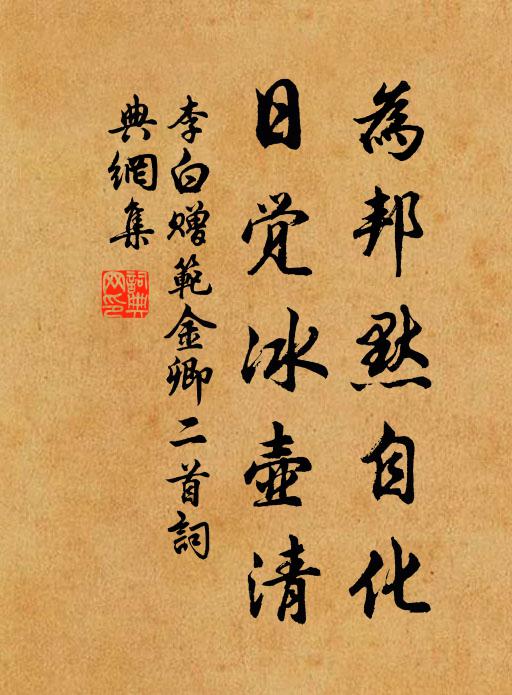 為邦默自化
日覺冰壺清
李白贈範金卿二首詞
典網集
詞典網印